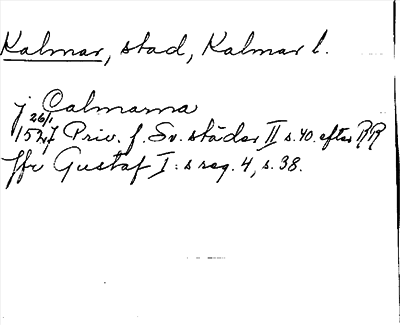 Kalmar, stad, Kalmar l.
j Calmarna
26/1
1527 Priv. f. Sv. städer II s. 40. efter RR
Jfr Gustaf I: s reg. 4, s. 38.